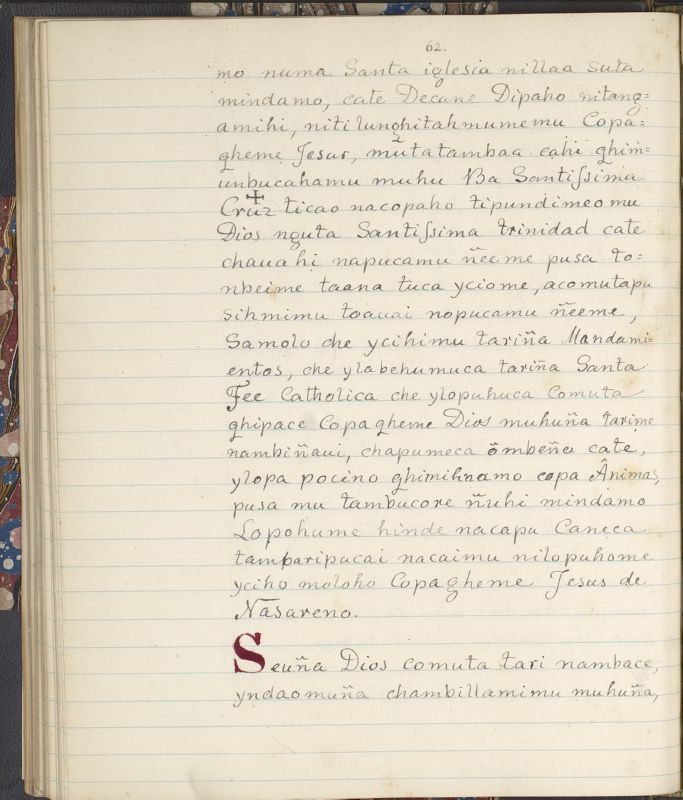 62.
mo numa Santa iglesia nillaa suta
mindamo, cate Decune Dipaho nitang=
amihi, niti lunghitahmumemu Copa=
gheme Jesus, mutatambaa cahi ghim=
unbucahamu muhu Ba Santiſsima
Cruz ticao nacopaho tipundimeo mu
Dios nguta Santiſsima trinidad cate
chauahi napucamu ñeeme pusa to=
nbeime taana tuca yciome, acomutapu
sihmimu toauai nopucamu ñeeme,
Samolo che ycihimu tariña Mandami=
entos, che ylabehumuca tariña Santa
Fee Catholica che ylopuhuca Comuta
ghipace Copagheme Dios muhuña tarime
nambiñaui, chapumeca ömbeño cate,
ylopa pocino ghimihnamo copa Ânimas,
pusa mu tambucore ñuhi mindamo
Lopohume hinde nacapu Caneca
tamparipucai nacaimu nilopuhome
yciho moloho Copagheme Jesus de
Nasareno.
Seuña Dios comuta tari nambace,
yndaomuña chambillamimu muhuña,